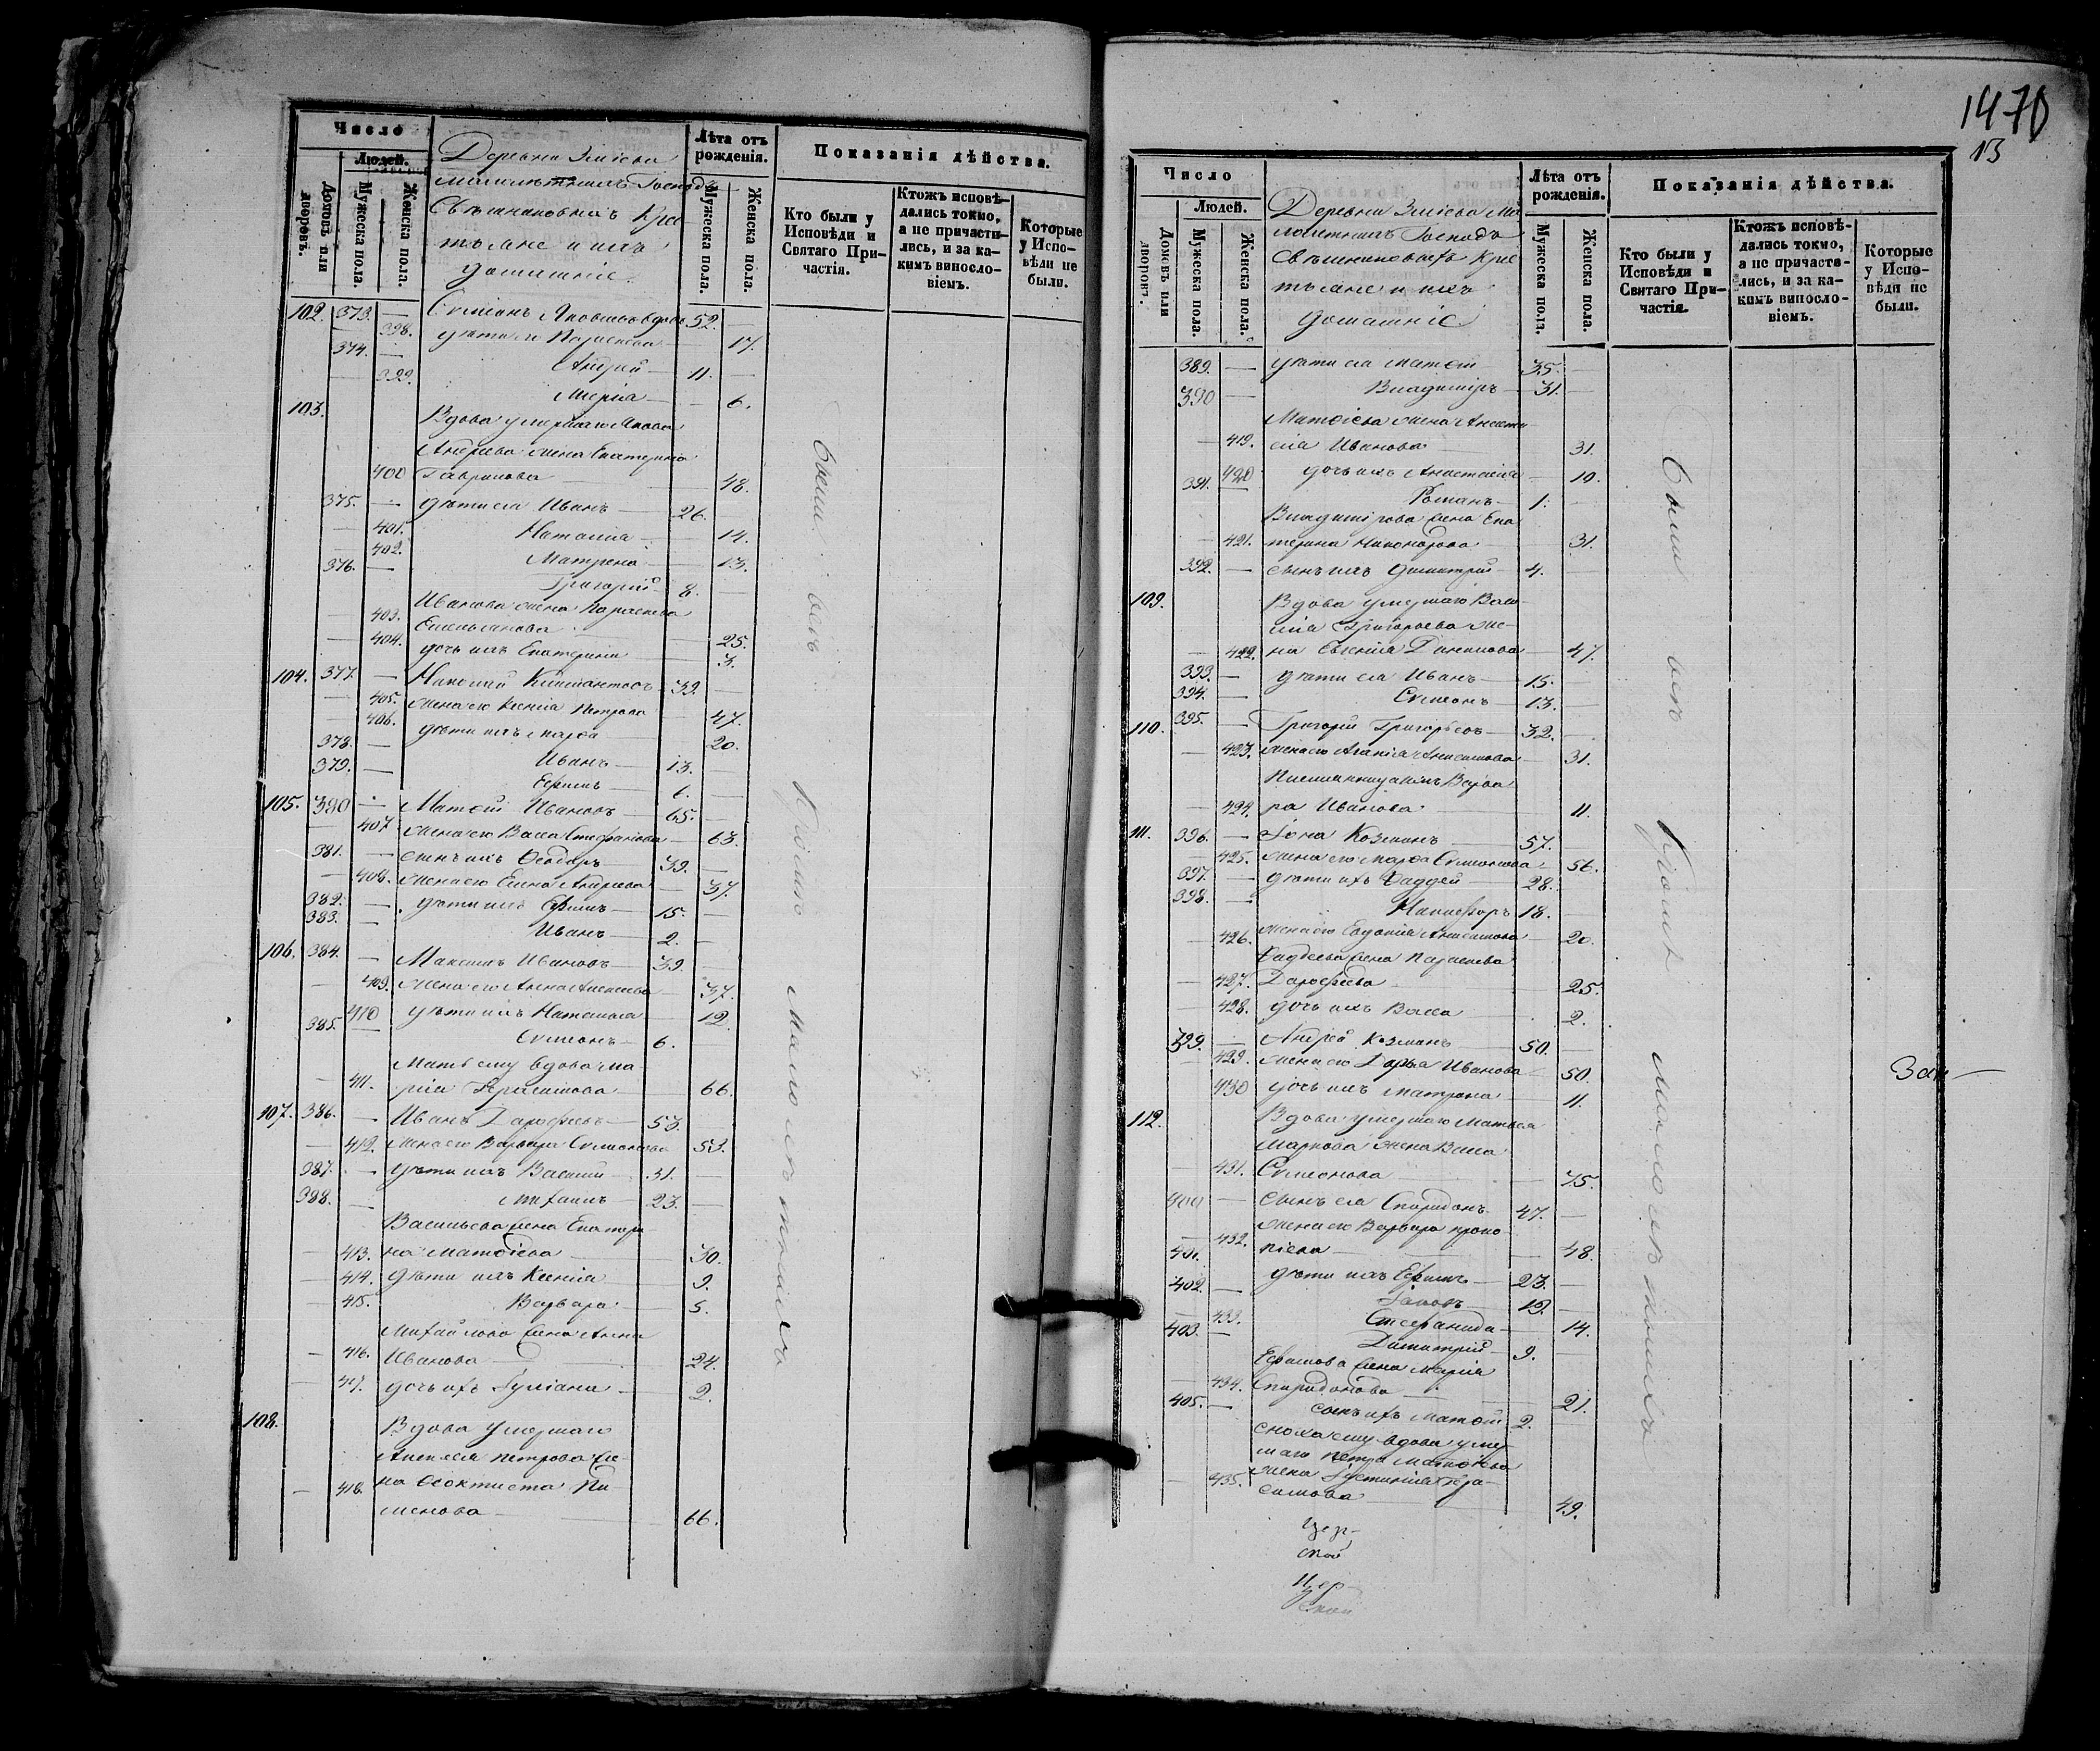 Число
Людей.
Домовъ или дворовъ.
Мужеска пола.
Женска пола.
Деревни Зміева
малолѣтныхъ Господъ
Свѣшниковыхъ Крес
тьяне и ихъ
домашніе
Лѣта отъ рожденія.
Мужеска пола.
Женска пола.
Показанія дѣйства.
Кто были у Исповѣди и Святаго Причастія.
Ктожъ исповѣдались токмо, а не причастились, и за какимъ винословіемъ.
Которые у Исповѣди не были.
102. 373. — Сѵмеонъ Яковлевъ вдовъ 52. —
398. дѣти его Параскева — 17.
374. — Андрей — 11. —
399. Марія — 6.
103. Вдова умершаго Іакова
Андреева жена Екатерина
400 Гаврилова — 48.
375. — дѣти ея Иванъ — 26.
401. Наталія — 14.
402. Матрена — 13.
376. — Григорій — 8. —
Иванова жена Параскева
403. Емельянова — 25.
404. дочь ихъ Екатерина — 3.
104. 377. — Николай 39. —
405. жена его Ксенія Петрова — 47.
406. дѣти ихъ Марѳа — 20.
378. — Иванъ — 13. —
379. — Ефимъ — 6. —
105. 380 — Матѳей Ивановъ — 65. —
407. жена его Васса Стефанова — 63.
381. — сынъ ихъ Ѳеодоръ — 39. —
408. жена его Елена Андреева — 37.
382. — дѣти ихъ Ефимъ — 15. —
383. — Иванъ — 2. —
106. 384. — Максимъ Ивановъ — 39. —
409. жена его Анна Алексеева — 37.
410 дѣти ихъ Наталія — 12.
385. — Сѵмеонъ — 6. —
Мать ему вдова Ма
411. рія Герасимова — 66.
107. 386. — Иванъ Дорофеевъ — 53. —
412. жена его Варвара Сѵмеонова 53.
387. — дѣти ихъ Василій — 31. —
388. — Михаилъ — 23. —
Васильева жена Екатери
413. на Матѳіева — 30.
414. дѣти ихъ Ксенія — 9.
415. Варвара — 5.
Михайлова жена Анна
416. Иванова — 24.
417. дочь ихъ Іуліана — 2.
108. Вдова умершаго
Алексѣя Петрова же
418. на Ѳеоктиста Пи
менова — 66.
были всѣ кромѣ малолѣтныхъ
1470
13
Число
Людей.
Домовъ или дворовъ.
Мужеска пола.
Женска пола.
Деревни Зміева Ма
лолетныхъ Господъ
Свѣшниковыхъ Крес
тьяне и ихъ
домашніе
Лѣта отъ рожденія.
Мужеска пола.
Женска пола.
Показанія дѣйства.
Кто были у Исповѣди и Святаго Причастія.
Ктожъ исповѣдались токмо, а не причастились, и за какимъ винословіемъ.
Которые у Исповѣди не были.
389. — дѣти ея Матѳей 35. —
390 — Владимиръ — 31. —
Матѳіева жена Анаста
419. сія Иванова — 31.
420 дочь ихъ Анастасія — 10.
391. — Романъ — 1. —
Владимирова жена Ека
421. терина Никонорова — 31.
392. — сынъ ихъ Димитрій — 4. —
109. Вдова умершаго Васи
лія Григорьева же-
422. на Евгенія Данилова — 47.
393. — дѣти ея Иванъ — 15. —
394. — Сѵмеонъ — 13. —
110. 395. — Григорій Григорьевъ — 32. —
423. жена его Агапія Анисимова — 31.
Племянница имъ Варва
424. ра Иванова — 11.
111. 396. — Іона Козминъ 57. —
425. жена его Марѳа Сѵмеонова 56.
397. — дѣти ихъ Ѳаддей — 28. —
398. — Никифоръ 18. —
426. жена его Евдокія Анисимова — 20.
Ѳаддеева жена Параскева
427. Дорофеева — 25.
428. дочь ихъ Васса — 2.
399. — Андрей Козминъ 50. —
429. жена его Дарья Иванова — 50.
430 дочь ихъ Матрона — 11.
112. Вдова умершаго Матвея
Маркова жена Васса
431. Сѵмеонова — 75.
400 — сынъ ея Спиридонъ 47. —
жена его Варвара Проко
432. піева — 48.
401. дѣти ихъ Ефимъ — 23. —
402. — Іаковъ — 19. —
433. Стефанида — 14.
403. — Димитрій — 9. —
Ефимова жена Марія
434. Спиридонова — 21.
405. — сынъ ихъ Матѳей 2.
сноха ему вдова умер
шаго Петра Матѳіева
435. жена Іустинія Гера-
симова — 49.
были всѣ кромѣ малолѣтныхъ